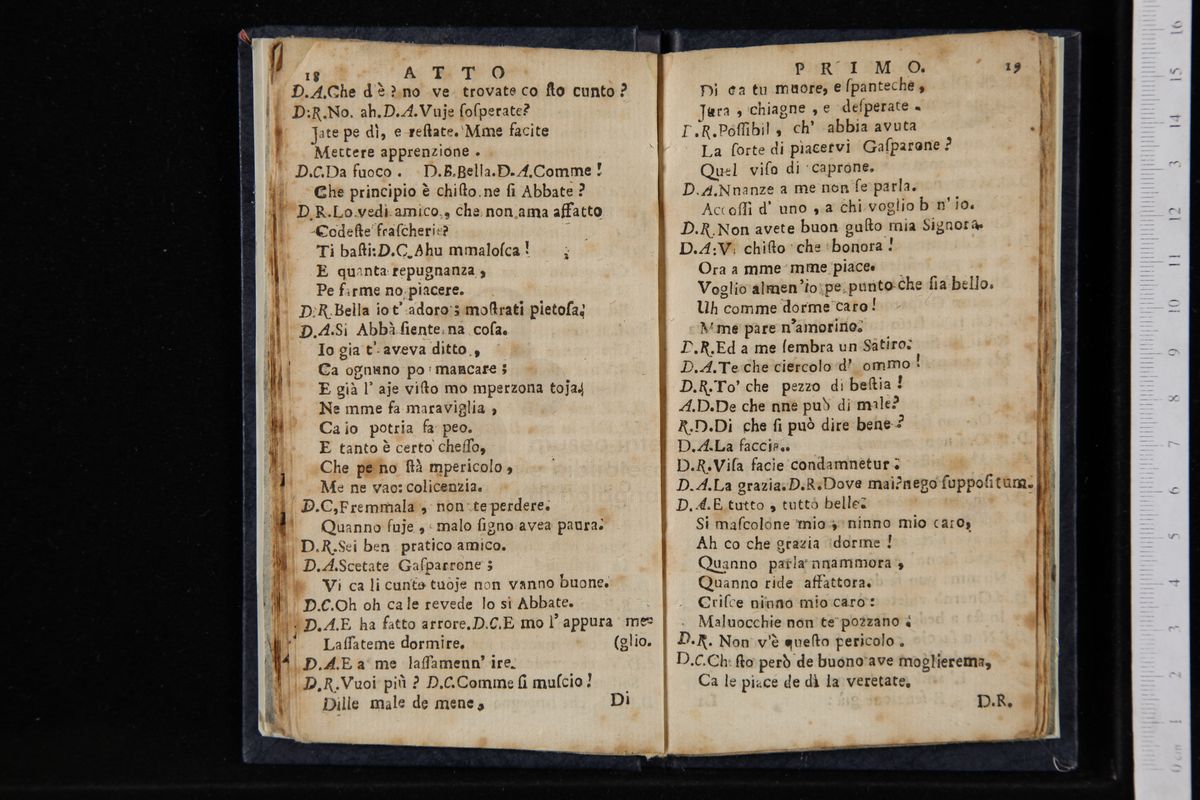 18 ATTO
D.A.Che d'è ? no ve trovate co ſto cunto ?
D:R.No. ah.D.A.Vuje ſoſperate?
Jate pe dì, e reſtate. Mme facite
Mettere apprenzione .
D.C.Da fuoco . D.R.Bella.D.A.Comme !
Che principio è chiſto ne ſi Abbate ?
D.R.Lo vedi amico , che non ama affatto
Codeſte fraſcherie?
Ti baſti:D.C.Ahu mmaloſca !
E quanta repugnanza ,
Pe farme no piacere.
D.R.Bella io t' adoro ; moſtrati pietoſa;
D.A.Si Abbà ſiente na coſa.
Io gia t' aveva ditto ,
Ca ognuno po mancare ;
E già l' aje viſto mo mperzona toja;
Ne mme fa maraviglia ,
Ca io potria fa peo.
E tanto è certo cheſſo,
Che pe no ſtà mpericolo ,
Me ne vao: colicenzia.
D.C,Fremmala , non te perdere.
Quanno fuje , malo ſigno avea paura.
D.R.Sei ben pratico amico.
D.A.Scetate Gaſparrone ;
Vi ca li cunte tuoje non vanno buone.
D.C.Oh oh ca le revede lo si Abbate.
D.A.E ha fatto arrore.D.C.E mo l' appura me-
Laſſateme dormire. (glio.
D.A.E a me laſſamenn' ire.
D.R.Vuoi più ? D.C.Comme ſi muſcio !
Dille male de mene, Di
PRIMO. 19
Di ca tu muore, e ſpanteche ,
Jura , chiagne , e deſperate .
D.R.Poſſibil , ch' abbia avuta
La ſorte di piacervi Gaſparone ?
Quel viſo di caprone.
D.A.Nnanze a me non ſe parla.
Accoſſì d' uno , a chi voglio b n' io.
D.R.Non avete buon guſto mia Signora.
D.A:Vi chiſto che bonora !
Ora a mme mme piace.
Voglio almen'io pe punto che ſia bello.
Uh comme dorme caro !
Mme pare n'amorino.
D.R.Ed a me ſembra un Satiro.
D.A.Te che ciercolo d' ommo !
D.R.To' che pezzo di beſtia !
A.D.De che nne può di male?
R.D.Di che ſi può dire bene ?
D.A.La faccia..
D.R.Viſa facie condamnetur.
D.A.La grazia.D.R.Dove mai?nego ſuppoſitum.
D.A.E tutto , tutto belle.
Si maſcolone mio , ninno mio caro,
Ah co che grazia dorme !
Quanno parla nnammora ,
Quanno ride affattora.
Criſce ninno mio caro :
Maluocchie non te pozzano .
D.R. Non v'è queſto pericolo .
D.C.Chiſto però de buono ave moglierema,
Ca le piace de dì la veretate.
D.R.